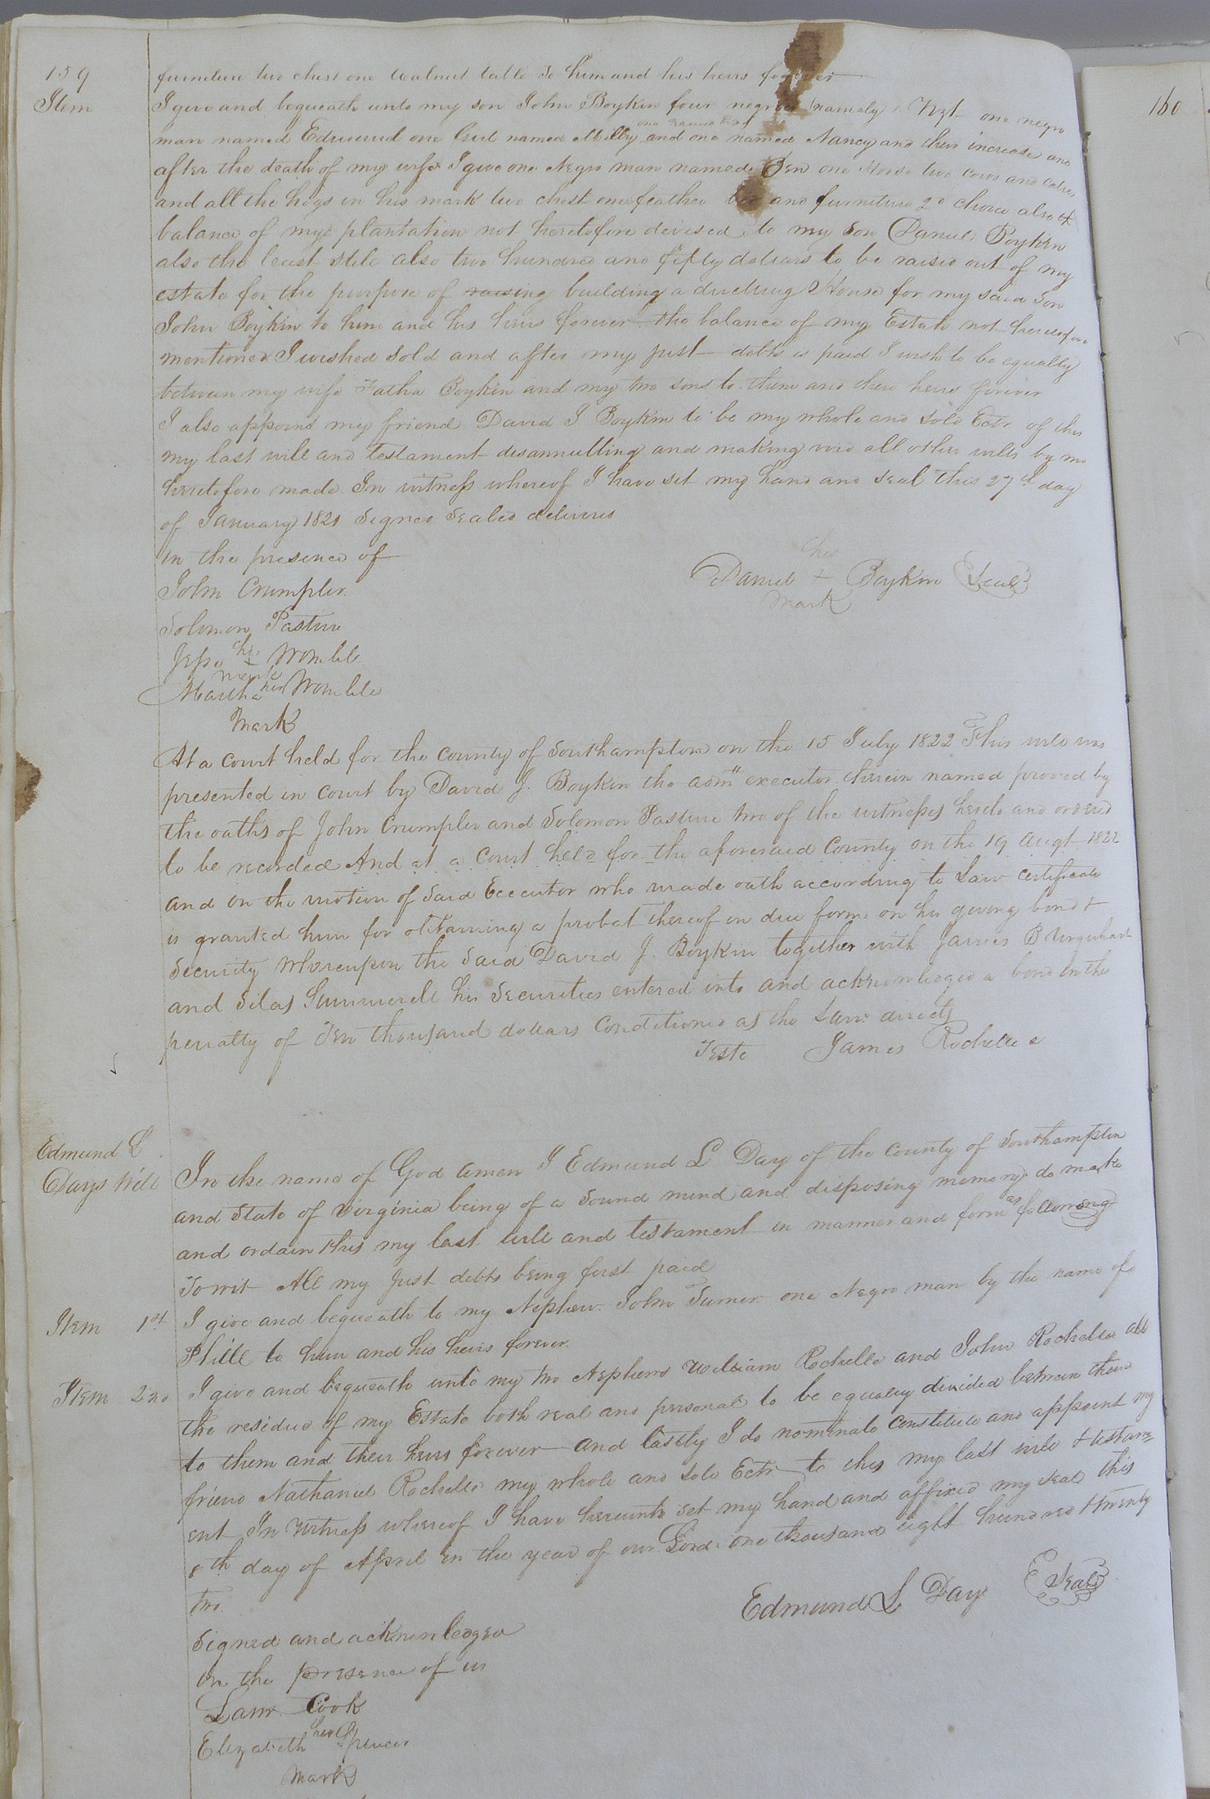 159
furniture two chest one walnut table to him and his heirs forever
Item I give and bequeath unto my son John Boykin four negroes (namely) Vizt one negro
man named Edmund one Girl named Milly and one named Nancy and their increase and
after the death of my wife I give one Negro man named Ben one Horse two cows and calves
and all the hogs in his mark two chest one feather bed and furniture 2d choice also the
balance of my plantation not heretofore devised to my son Daniel Boykin
also the least still also two hundred and fifty dollars to be raised out of my
estate for the purpose of raising building a dwelling House for my said Son
John Boykin to him and his heirs forever the balance of my Estate not heretofore
mentioned I wished sold and after my just debts is paid I wish to be equally
between my wife Fatha Boykin and my two sons to them and their heirs forever
I also appoint my friend David J Boykin to be my whole and sole Extr of this
my last will and testament disannulling and making void all other wills by me
heretofore made In witness whereof I have set my hand and seal this 27th day
of January 1821 Signed Sealed delivered
in the presence of
John Crumpler
his
Daniel + Boykin (Seal)
mark
Solomon Pasture
Jesse his + Womble
mark
Martha her Womble
mark
At a court held for the county of Southampton on the 15 July 1822 This will was
presented in court by David J. Boykin the executor therein named proved by
the oaths of John Crumpler and Solomon Pasture two of the witnesses hereto and ordered
to be recorded And at a Court held for the aforesaid County on the 19 Augt 1822
and on the motion of said Executor who made oath according to Law certificate
is granted him for obtaining a probat thereof in due form on his giving bond &
security Whereupon the Said David J. Boykin together with James B Urquhart
and Silas Summerell his Securities entered into and acknowledged a bond in the
penalty of Ten thousand dollars Conditioned as the Law directs
Teste James Rochelle c
Edmund L
Days Will
In the name of God amen I Edmund L Day of the county of Southampton
and State of Virginia being of a Sound mind and disposing memory do make
and ordain this my last will and testament in manner and form as following
Towit All my just debts being first paid
Item 1st I give and bequeath to my Nephew John Turner one Negro man by the name of
Phill to him and his heirs forever
Item 2nd I give and bequeath unto my two Nephews William Rochelle and John Rochelle all
the residue of my Estate both real and personal to be equally divided between them
to them and their heirs forever and lastly I do nominate constitute and appoint my
friend Nathaniel Rochelle my whole and sole Extr to this my last will & testam
ent In witness whereof I have hereunto set my hand and affixed my seal this
8th day of April in the year of our Lord one thousand eight hundred & twenty
two
Edmund L Day (Seal)
Signed and acknowledged
in the presence of us
Lawr Cook
Elizabeth her Spencer
mark
160